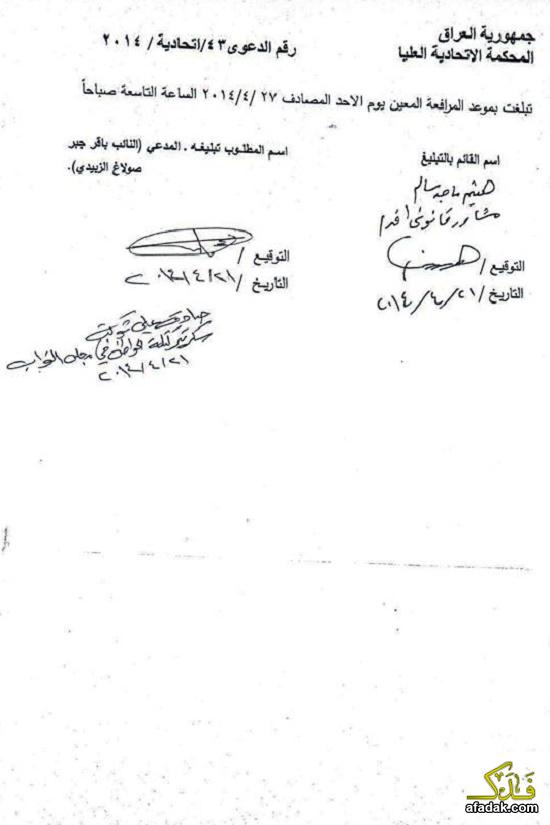 جمهورية العراق
المحكمة الاتحادية العليا
رقم الدعوى ٤٣/اتحادية/ ٢٠١٤
تبلغت بموعد المرافعة المعين يوم الاحد المصادف ٢٧ /٢٠١٤/٤ الساعة التاسعة صباحاً
اسم القائم بالتبليغ
هيثم ماجد سالم
مشاور قانوني اقدم
التوقيع /
التاريخ / ٢٠١٤/٤/٢١
اسم المطلوب تبليغه . المدعي (النائب باقر جبر
صولاغ الزبيدي).
التوقيع /
التاريخ / ٢٠١٤/٤/٢١
علي شوكت
سكرتير كتلة المواطن في مجلس النواب
٢٠١٤/٤/٢١
فدك
afadak.com